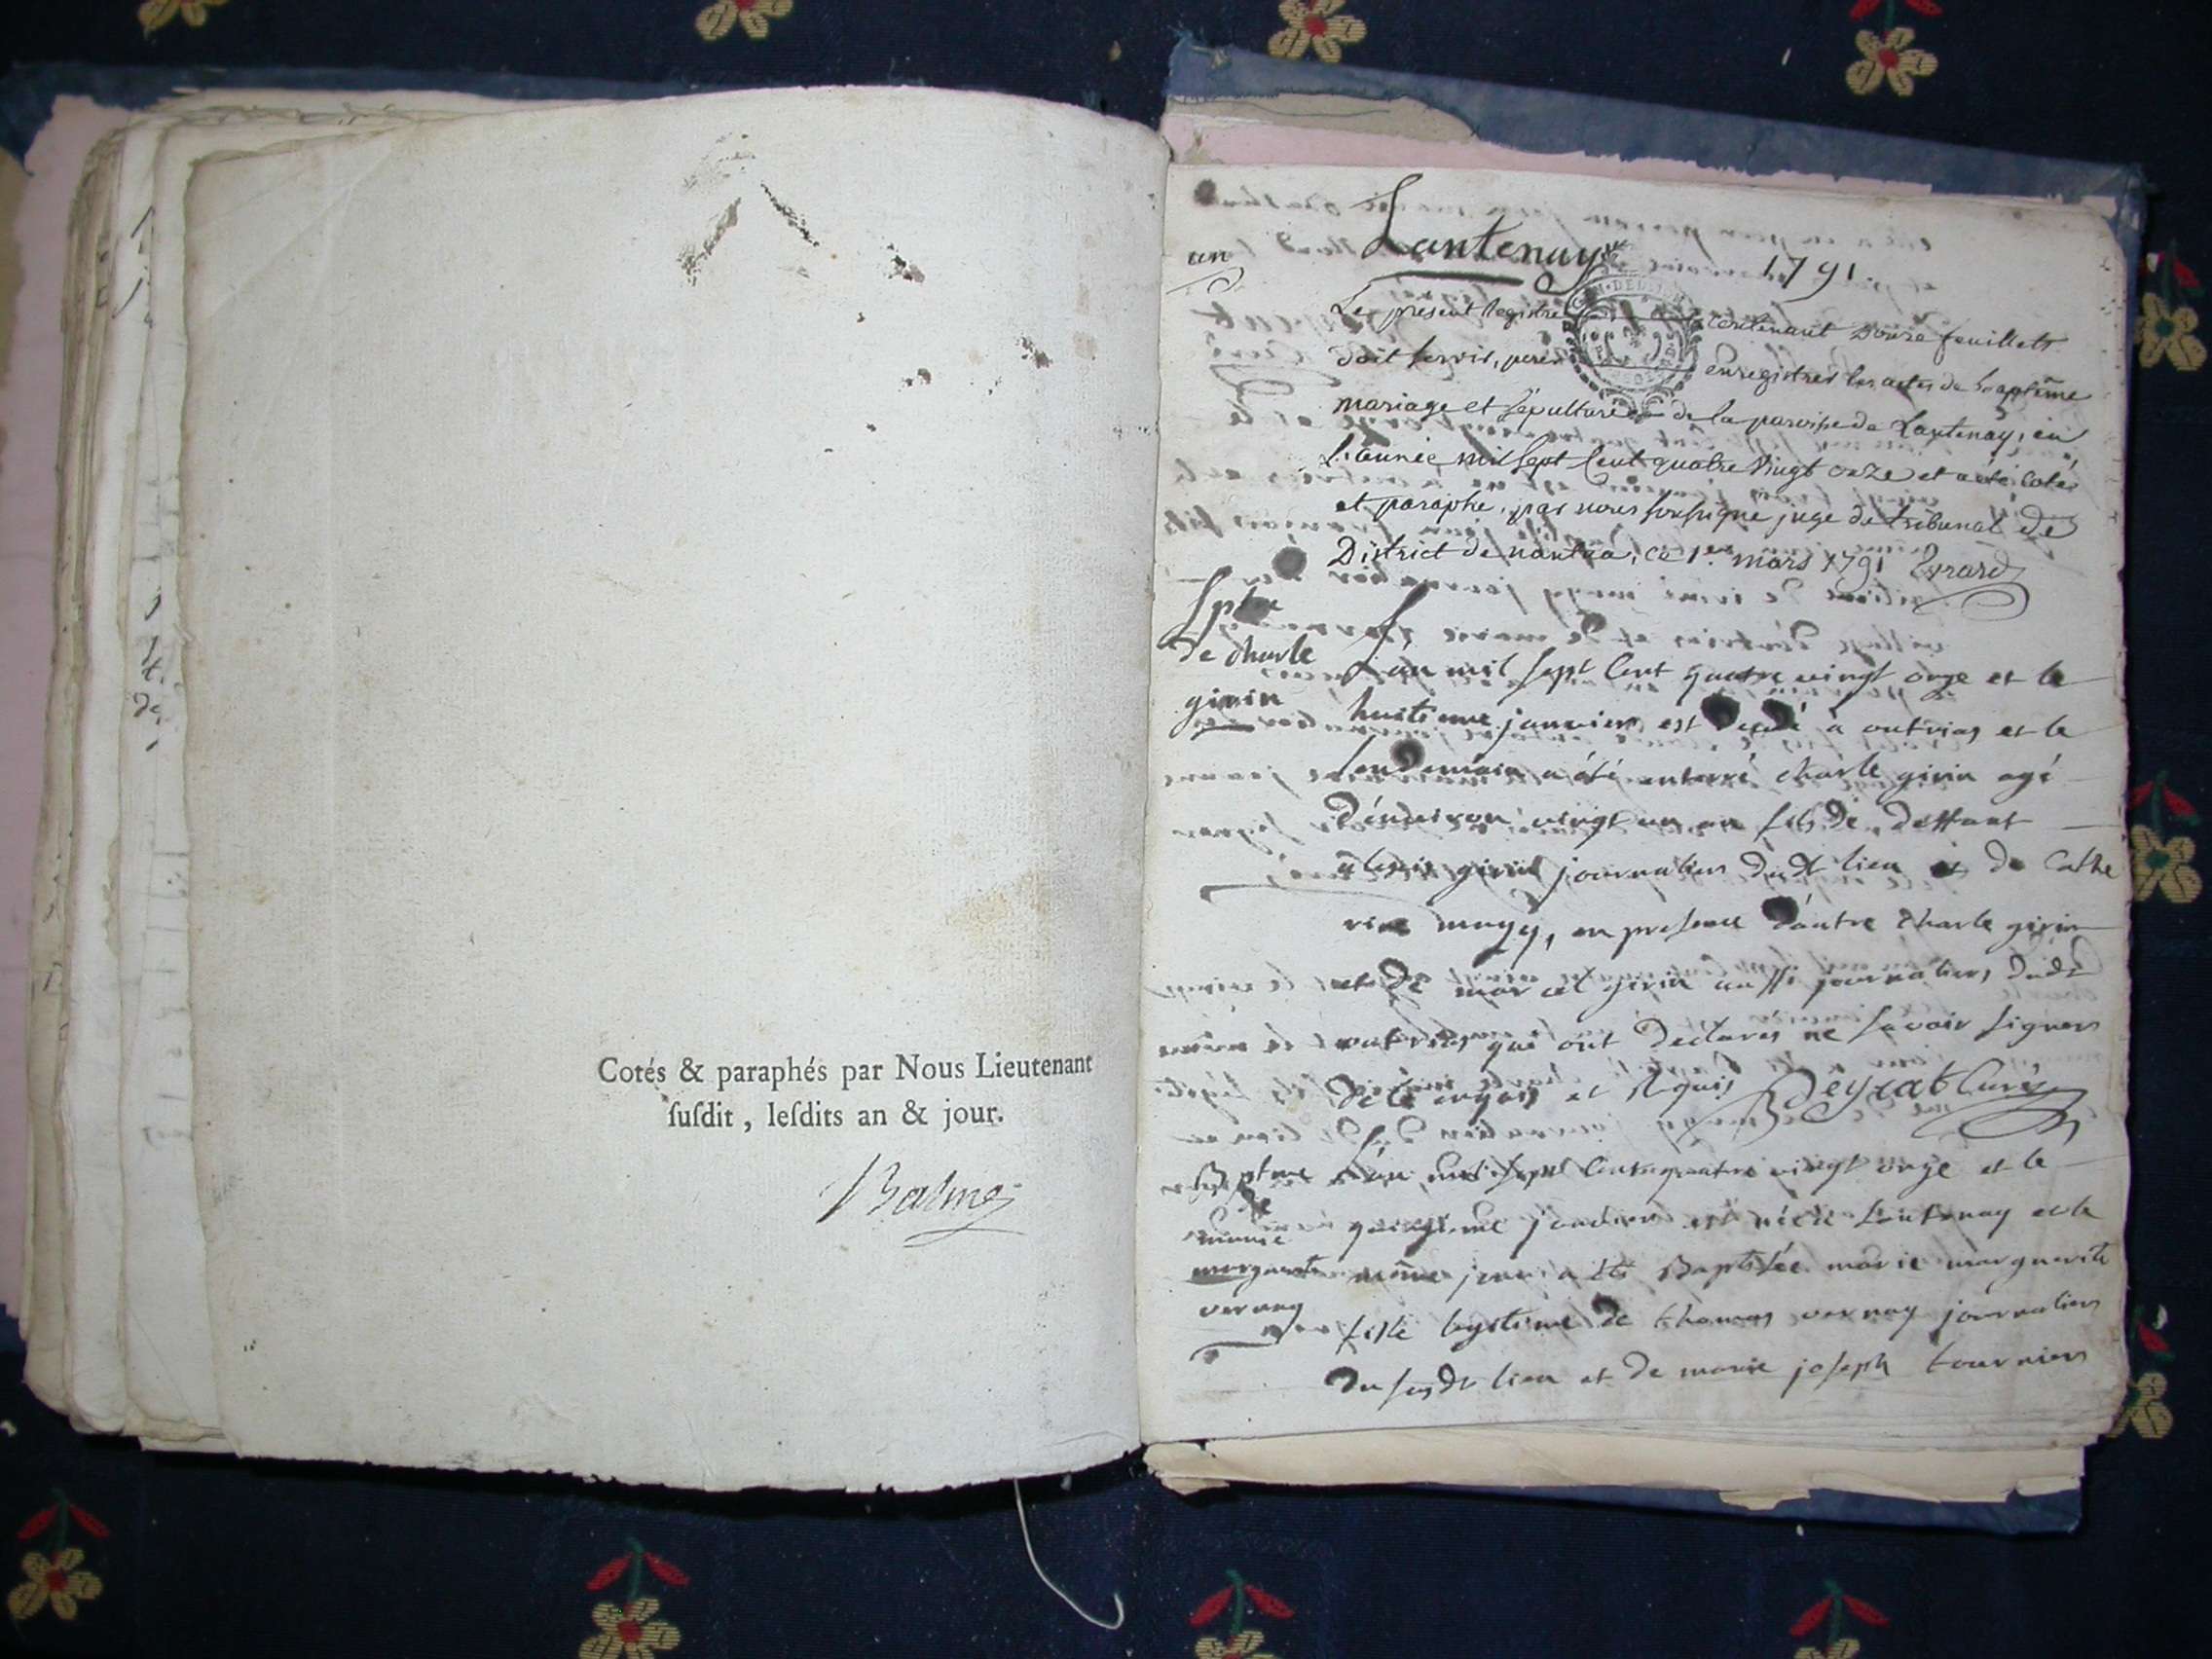 Cotés & paraphés par Nous Lieutenant
ſuſdit, leſdits an & jour.
Balme
un
Lantenay
1791
Le présent Registre contenant Douze feuillets
doit servir, pour enregistrer les actes de baptême
mariage et sépulture de la paroisse de Lantenay, en
L'année mil sept Cent quatre vingt onze et a été coté
et paraphé, par nous soussigné juge du tribunal de
District de nantua, ce 1er mars 1791 Evrard
Sptre
de charle
girin
L'an mil sept Cent quatre vingt onze et le
huitieme janvier est Décédé à outriaz et le
lendemain a été enterré charle girin agé
D'environ vingt un an fils de deffunt
girin journalier dudt lieu et de Cathe
rine mugy, en presence d'autre charle girin
et de marcel girin aussi journaliers dudt
outriaz qui ont declarés ne savoir signer
de ce enquis et Requis Beyrat Curé
Bptme
de
marie
marguerite
vernay
L'an mil sept Cent quatre vingt onze et le
quinzieme janvier est née à Lantenay et le
même jour a été Baptisée marie marguerite
fille legitime de thomas vernay journalier
du susdt lieu et de marie joseph tournier